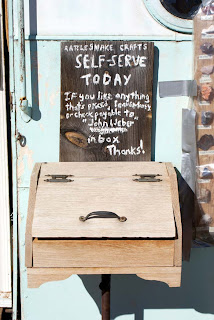 RATTLESNAKE CRAFTS
SELF-SERVE
TODAY
IF you like anything
that's priced, leave
or check payable to
"John Weber
in box
Thanks!